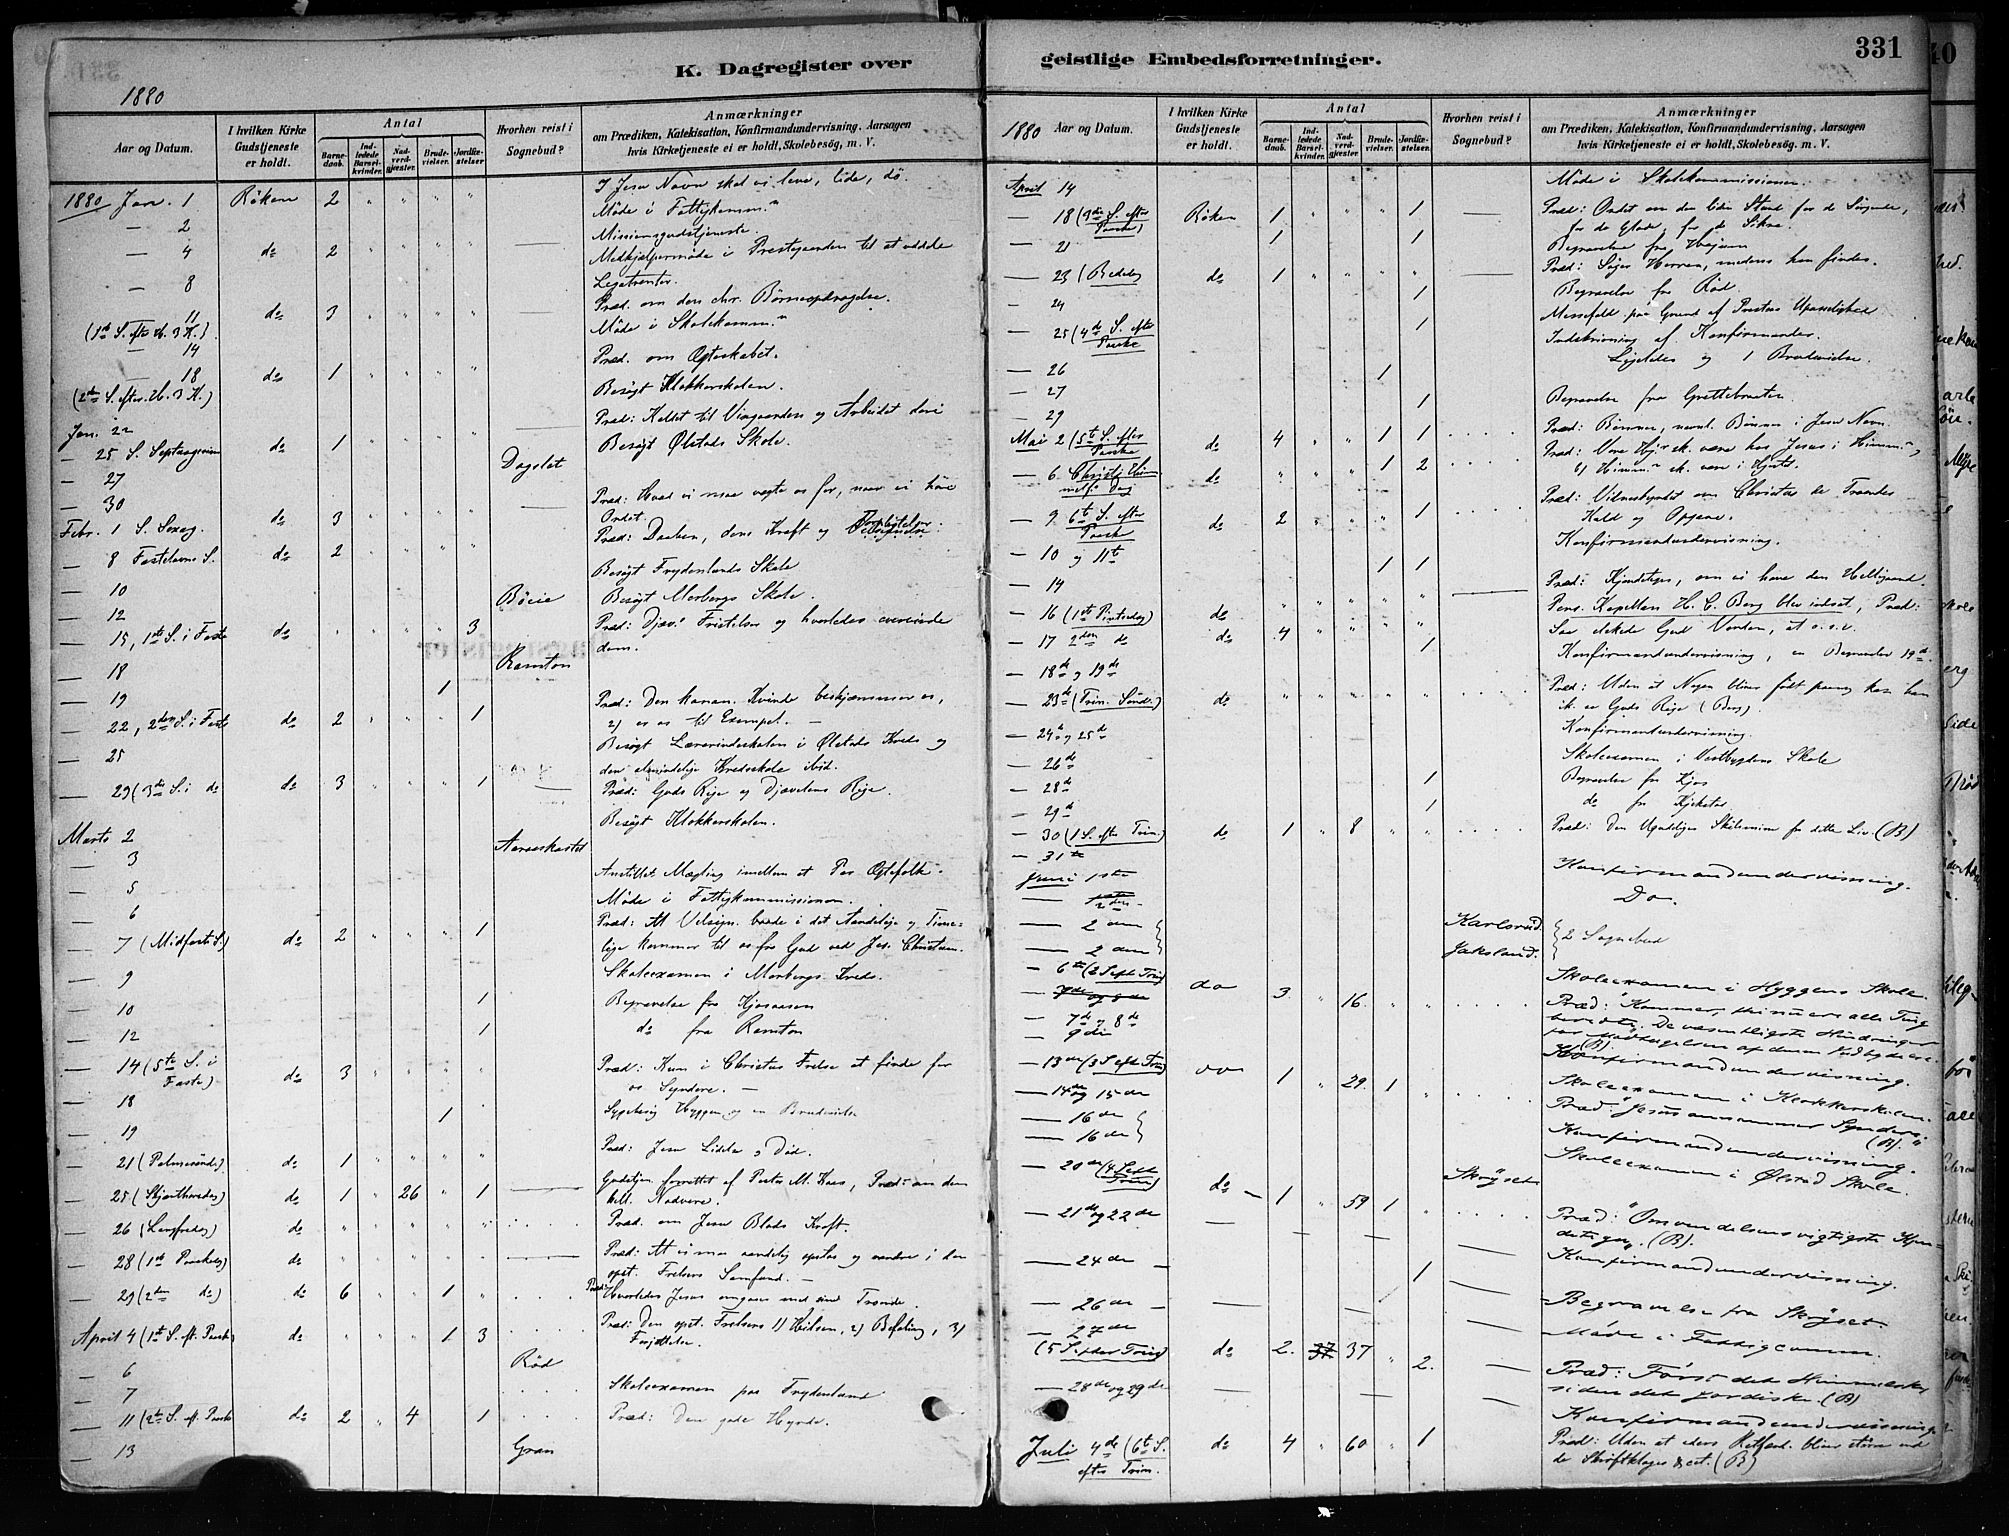 K. Dagregister over
1880
Aar og Datum.
I hvilken Kirke Gudstjeneste er holdt.
Antal
Barnedaab.
Indledede Barselkvinder.
Nadverdgjester.
Brudevielser.
Jordfæstelser
Hvorhen reist i Sognebud?
Anmærkninger
om Prædiken, Katekisation, Konfirmandundervisning, Aarsagen
hvis Kirketjeneste ei er holdt, Skolebesøg, m. V.
1880 Jan. 1 Röken 2 " " " " I Jesu Navn skal vi leve, lide, dö.
— 2 Möde i Fattigkomm.n
Missionsgudstjeneste.
— 4 do 2 " " " " — Medhjælpermöde i Prestegaarden til at uddele
— 8 Legatrenter.
11 do 3 " " " " — Præd. om den chr. Börneopdragelse.
(1ste S. efter H. 3 K.)
— 14 Möde i Skolekomm.n
— 18 do 1 " " " " Præd. om Ægteskabet.
(2den S. efter H. 3 K.)
Jan. 22 Besögt Klokkerskolen.
— 25 S. Septuagesima do 1 " " " " — Præd: Kaldet til Vingaarden og Arbeidet deri
— 27 Dagslet Besögt Ølstads Skole.
— 30
Febr. 1 S. Sexag. do 3 " " " " — Præd: Hvad vi maa vogte os for, naar vi höre
Ordet.
— 8 Fastelavns S. do 2 " " " " Præd: Daaben, dens Kraft og Forpligtelser.
— 10 Besögt Frydenlunds Skole
— 12 Böeie Besögt Morbergs Skole.
— 15, 1ste S. i Faste do " " " " 3 Præd: Djæv.s Fristelser og hvorledes overvinde
dem.
— 18 Ramton
— 19 1
— 22, 2den S. i Faste do 2 " " " 1 Præd: Den kanan. Kvinde beskjæmmer os,
2) er os til Exempel. —
— 25 Besögt Lærerindeskolen i Ølstads Kreds og
den almindelige Kredsskole ibid.
— 29 (3die S. i do do 3 " " " 1 — Præd: Guds Rige og Djævelens Rige.
Marts 2 Besögt Klokkerskolen.
— 3
— 5 Anstillet Mægling imellem et Par Ægtefolk.
— 6 Möde i Fattigkommissionen.
— 7 (Midfaste S.) do 2 " " " 1 Præd: At Velsign. baade i det Aandelige og Time-
lige kommer til os fra Gud ved Jes. Christum.
— 9 Skoleexamen i Morbergs Kreds.
— 10 1 Begravelse fra Kjosaasen
— 12 1 do fra Ramton
— 14 (5te S. i Faste) do 3 " " " " Præd: Kun i Christus Frelse at finde for
os Syndere. —
— 18 Sygebesög Hyggen og en Brudevielse
— 19 1
— 21 (Palmesöndag) do 1 " " " " Præd: Jesu Lidelse og Död.
— 25 (Skjærthorsdag) do 1 " 26 " 1 — Gudstjen. forrettet af Pastor M. Kaas, Præd: om den
hell. Nadvere.
— 26 (Langfredag) do " " " " " Præd: om Jesu Blods Kraft.
— 28 (1ste Paaskedag) do " " " " " — Præd: At vi maa aandelig opstaa og vandre i den
opst. Frelsers Samfund. —
— 29 (2den do) do 6 " " 1 " Præd: Hvorledes Jesus omgaaes med sine Troende.
April 4 (1ste S. eft. Paaske) do " " " 1 3 Præd: Den opst. Frelsers 1) Hilsen, 2) Befaling, 3)
Forjættelse.
— 6 Röd
— 7 Skoleexamen paa Frydenlund
— 11 (2den S. eft. Paaske do 2 " 4 " 1 Præd: Den gode Hyrde.
— 13 Gran
geistlige Embedsforretninger.
331
1880 Aar og Datum.
I hvilken Kirke Gudstjeneste er holdt.
Antal
Barnedaab.
Indledede Barselkvinder.
Nadverdgjester.
Brudevielser.
Jordfæstelser.
Hvorhen reist i Sognebud?
Anmærkninger
om Prædiken, Katekisation, Konfirmandundervisning, Aarsagen
hvis Kirketjeneste ei er holdt, Skolebesøg, m. V.
April 14 Möde i Skolekommissionen.
— 18 (3die S. efter Paaske) Röken 1 " " " 1 — Præd: Ordet om den liden Stund for de Sörgende,
for de Glade, for de Sikre.
— 21 1 1 Begravelse fra
— 23 (Bededag do 1 " " " " — Præd: Söger Herren, medens han findes.
— 24 1 Begravelse fra Röd.
— 25 (4de S. efter Paaske 1 Messefald paa Grund af Prestens Upasselighed
— 26 Indskrivning af Konfirmander.
— 27 1 Ligeledes og 1 Brudevielse.
— 29 1 Begravelse fra Grettebraaten
Mai 2 (5te S. efter Paaske do 4 " " 1 1 Præd: Bönnen, navnl. Bönnen i Jesu Navn.
— 6 Christi Himmelf. Dag do " " " 1 2 Præd: Vore Hj. sk. være hos Jesus i Himm.n,
2) Himm.n sk. være i Hjertet.
— 9 6te S. efter Paaske do 2 " " " 1 Præd: Vidnesbyrdet om Christus de Troendes
Kald og Opgave.
— 10 og 11te Konfirmandundervisning.
— 14 1 1
— 16 (1ste Pintsedag) do " " " " " — Præd: Kjendetegn, om vi have den Helligaand.
— 17 2den do do 4 " " " " Pers. Kapellan H. C. Berg blev indsat, Præd:
Saa elskede Gud Verden, at o.s.v.
— 18de og 19de 1 Konfirmandundervisning, en Begravelse 19de
— 23de (Trin. Sönd.) do " " " " " Præd: Uden at Nogen bliver födt paany kan han
ik. se Guds Rige (Berg).
— 24de og 25de Konfirmandundervisning.
— 26de Skoleexamen i Vestbygdens Skole
— 28de 1 Begravelse fra Kjos
— 29de 1 do fra Kjekstad
— 30 (1 S. efter Trin.) do 1 " 8 " " Præd: Den Ugudeliges Skilsmisse fra dette Liv. (B)
— 31te
Juni 1ste Konfirmandundervisning.
— 2den Do.
— 2 den Karlsrud. } 2 Sognebud
— 2 den Jaksland.
— 6te (2 S. eft. Trin) do 3. " 16. " " Skoleexamen i Hyggens Skole.
— 7de og 8de Præd: "Kommer, thi nu er alle Ting
— 9de beredte". De væsentligste Hindringer
for Modtagelsen af denne Indbydelse. (B).
— 13de (3 S. eft. Trin) do 1 " 29. 1 " Konfirmandundervisning.
— 14de og 15de Skoleexamen i Klokkerskolen.
— 16de Præd: "Jesus annammer Syndere." (B).
— 16de Konfirmandundervisning.
— 20de (4 S. eft. Trin) do — 1 " 59 1 " Skröyset Skoleexamen i Ølstad Skole.
— 21de og 22de — Præd: "Omvendelsens vigtigste Kjen-
detegn". (B).
— 24de — 1 Konfirmandundervisning.
— 26de — Begravelse fra Skröyset.
— 27de Möde i Fattigcomm.
(5 S. efter Trin) do 2. 37 " 2. — Præd: Först det Himmelske,
siden det Jordiske. (B)
— 28de og 29de — Konfirmandundervisning.
Juli 4de (6te S. efter Trin. do 4 " 60 " 1 Præd: Uden at eders Retfærd. bliver större end
de Skriftkloges & cet. (B)